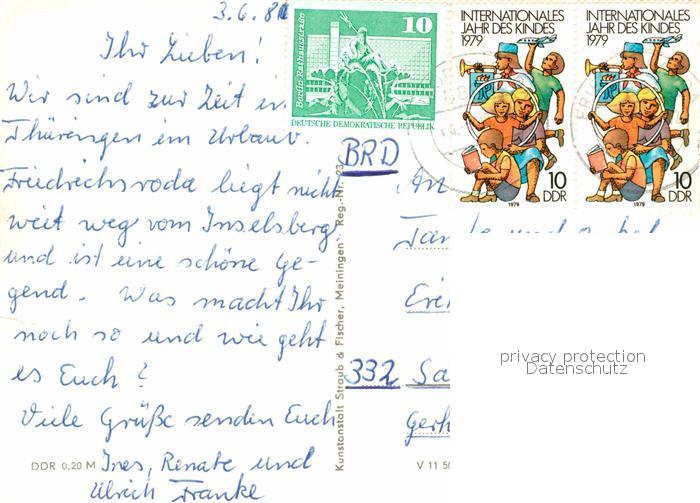 3.6.80
Ihr Lieben!
Wir sind zur Zeit in
Thüringen im Urlaub.
Friedrichsroda liegt nicht
weit weg vom Inselsberg
und ist eine schöne Ge-
gend. Was macht Ihr
noch so und wie geht
es Euch?
Viele Grüße senden Euch
Ines, Renate und
Ulrich Franke
DDR 0,20 M
Kunstanstalt Straub & Fischer, Meiningen Reg.-Nr.
V 11 50
10
Berlin, Rathausstraße
DEUTSCHE DEMOKRATISCHE REPUBLIK
INTERNATIONALES
JAHR DES KINDES
1979
10
DDR
1979
INTERNATIONALES
JAHR DES KINDES
1979
10
DDR
1979
BRD
An
332 Sa
Gerh
privacy protection
Datenschutz